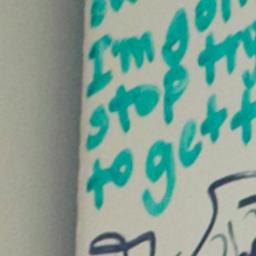 I'm go
stop try
to get t